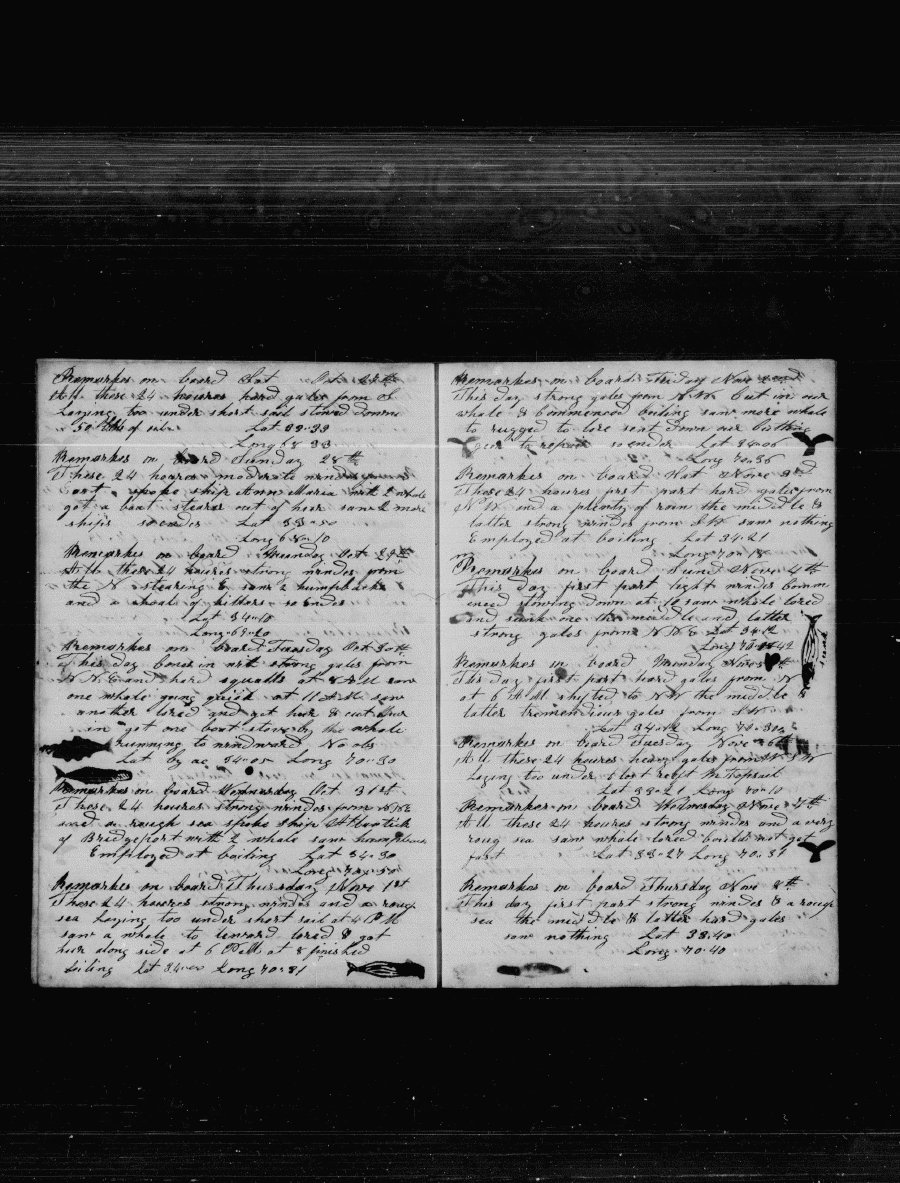 Remarkes on board Sat Oct 27th
All these 24 houres hard gales from S
Laying too under short sail stowed down
50 bbls of
Lat 33-33
Long 68 33
Remarkes on board Sunday 28th
These 24 houres moderate winds
spoke ship Ann Maria with 2 whale
got a boat stearer out of her saw 2 more
ships so ends Lat 33-50
Long 68-10
Remarkes on board Munday Oct 29th
All these 24 houres strong windes from
the N stearing E saw 2 humpbacks
and a shoal of killers so endes
Lat 34-10
Long-69-20
Remarkes on board Tuesday Oct 30th
This day comes in with strong gales from
N N E and hard squalls at 8 AM saw
one whale going quick at 11 AM saw
another lored and got her & cut her
in got one boat stove by the whale
running to windward No obs
Lat by ac 34-05 Long 70-30
Remarkes on board Wensday Oct 31st
These 24 houres strong windes from NNE
and a rough sea spoke Ship Atlantick
of Bridgeport with 2 whale saw
Employed at boiling Lat 34-30
Long 70-50
Remarkes on board Thursday Nove 1st
These 24 houres strong windes and a roug
sea Laying too under short sail at 4 PM
saw a whale to leward lored & got
her along side at 6 PM at 8 finished
boiling Lat 34-00 Long 70-31
Remarkes on board Friday Nove 2nd
This day strong gales from N W Cut in our
whale & Commenced boiling saw more whale
to rugged to lore seat down our Cutting
gear to repair so ender Lat 34-06
Long 70-36
Remarkes on board Sat Nove 3rd
These 24 houres first part hard gales from
N W and a plenty of rain the middle &
latter strong windes from S W saw nothing
Employed at boiling Lat 34-21
Long 70-18
Remarkes on board Sund Nove 4th
This day first part light windes Comm
enced stowing down at 10 saw whale lored
and sunk one the middle and latter
strong gales from N N E Lat 34-12
Long 70-42
Sunk
Remarkes on board Munday Nove 5th
This day first part hard gales from N
at 6 AM shifted to N W the middle &
latter tremendious gales from S W
Lat 34-12 Long 70-30
Remarkes on board Tuesday Nove 6th
All these 24 houres heavy gales from S W
Laying too under
Lat 33-21 Long 70-10
Remarkes on board Wednesday Nove 7th
All these 24 houres strong windes and a very
roug sea saw whale lored Could not get
fast Lat 33-27 Long 70-31
Remarkes on board Thursday Nov 8th
This day first part strong windes & a roug
sea the middle & latter hard gales
saw nothing Lat 33-40
Long 70-40